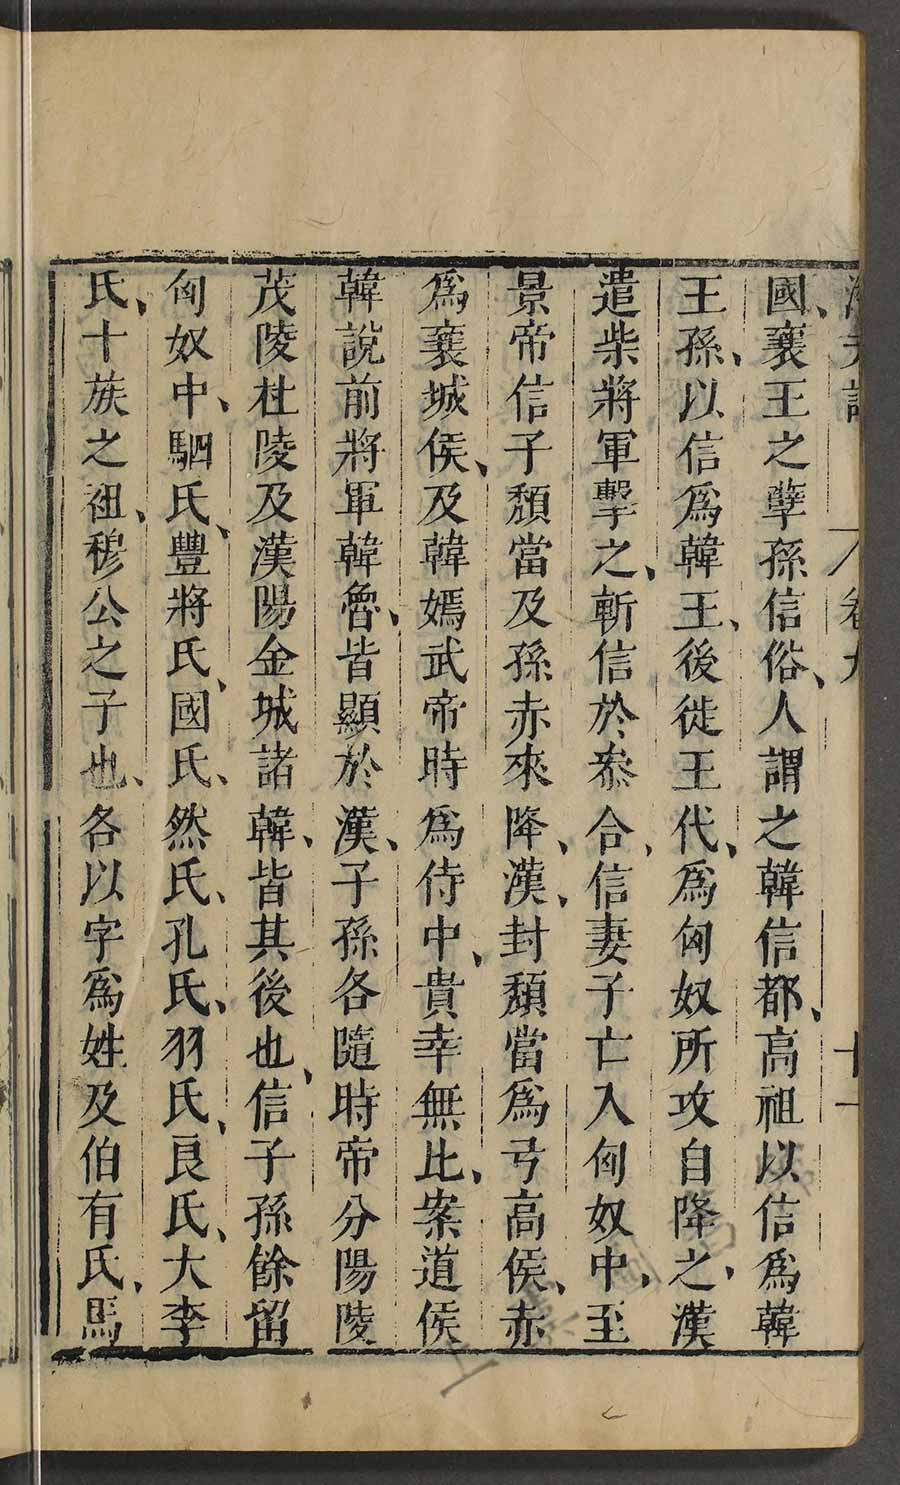 卷九 十一
國、襄王之孽孫信俗、人謂之韓信都、高祖以信爲韓
王孫、以信爲韓王、後徙王代、爲匈奴所攻自降之、漢
遣柴將軍擊之、斬信於叅合、信妻子亡入匈奴中、至
景帝信子頹當及孫赤來降、漢、封頹當爲弓高侯、赤
爲襄城侯、及韓嫣武帝時爲侍中、貴幸無比、案道侯
韓說前將軍韓魯、皆顯於漢、子孫各隨時帝分陽陵
茂陵杜陵及漢陽金城諸韓、皆其後也、信子孫餘留
匈奴中、駟氏、豐將氏、國氏、然氏、孔氏、羽氏、良氏、大季
氏、十族之祖、穆公之子也、各以字爲姓及伯有氏、馬